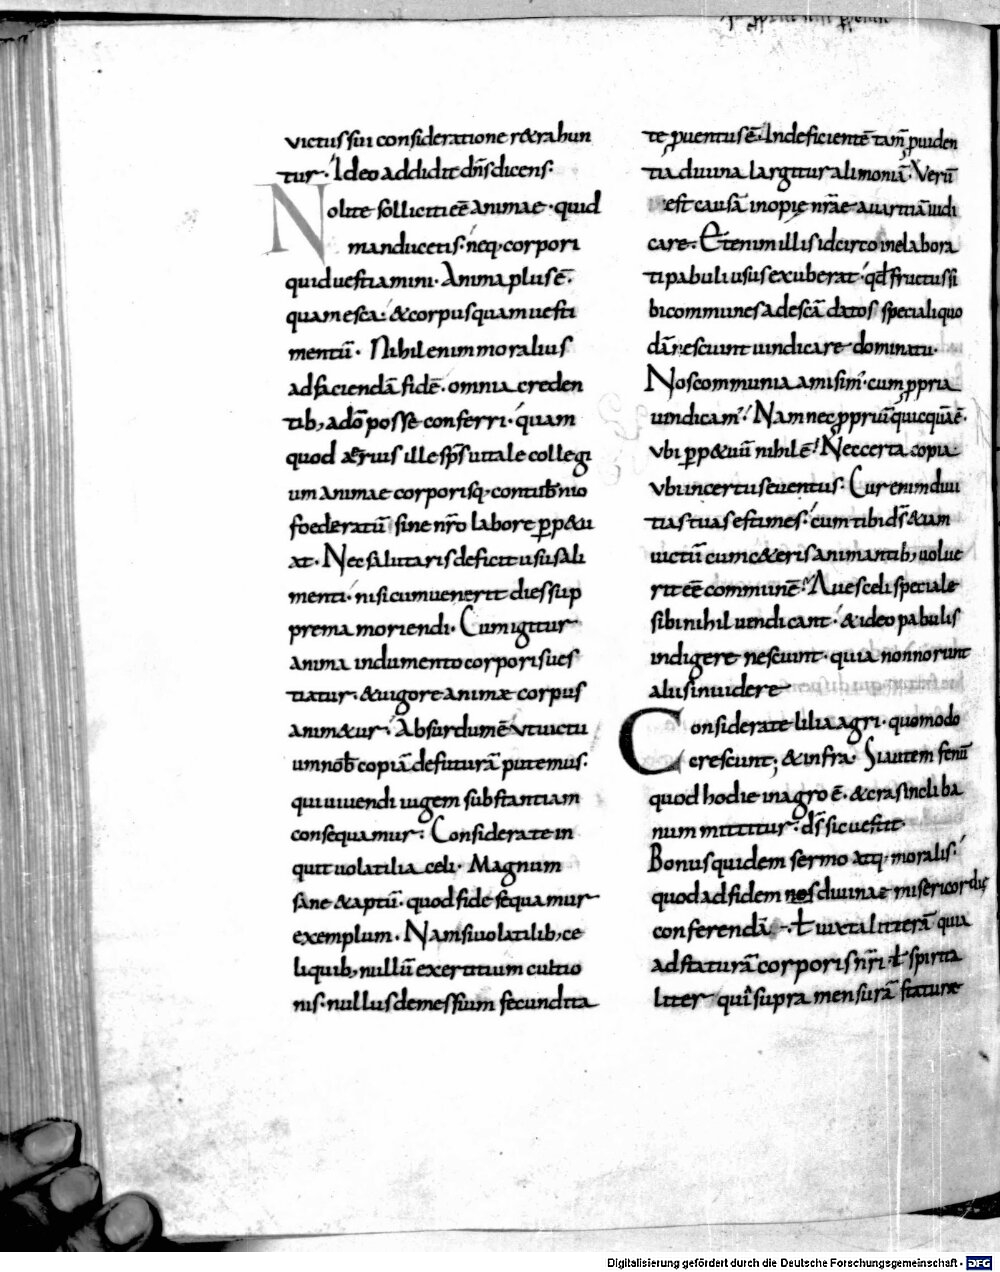 victus sui consideratione r&rahun
tur. Ideo addidit dñs dicens.
Nolite solliciti eẽ animae. quid
manducetis. neq; corpori
quid uestiamini. Anima plus ẽ.
quam esca. & corpus quam uesti
mentũ. Nihil enim moralius
ad faciendã fidẽ. omnia creden
tib; a dõ posse conferri. quam
quod aetherius ille sp̃s uitale collegi
um animae corporisq; contuƀnio
foederatũ sine nr̃o labore ꝑp&u
at. Nec salutaris deficit usus ali
menti. nisi cum uenerit dies sup
prema moriendi. Cum igitur
anima indumento corporis ues
tiatur. & uigore animæ corpus
anim&ur. Absurdum ẽ ut uictu
um noƀ copiã defuturã putemus.
qui uiuendi iugem substantiam
consequamur. Considerate in
quit uolatilia celi. Magnum
sane & aptũ. quod fide sequamur
exemplum. Nam si uolatilib; ce
li quib; nullũ exercitium cultio
nis. nullus de messium fecundita
te prouentus ẽ. Indeficientẽ tam̃ prouiden
tia diuina largitur alimoniã. Verũ
est causã inopie nr̃ae auaritiã iudi
care. Etenim illis idcirco inelabora
ti pabuli usus exuberat. qđ fructus si
bi communes ad escã datos speciali quo
dã nesciunt uindicare dominatu.
Nos communia amisim'. cum ꝓpria
uindicam'. Nam nec ꝓpriũ quicquã ẽ.
ubi ꝑp&uũ nihil ẽ. Nec certa copia
ubi incertus euentus. Cur enim diui
tias tuas estimes. cum tibi d̃s &iam
uictũ cum c&eris animantib; uolue
rit eẽ communẽ. Aues celi speciale
sibi nihil uendicant. & ideo pabulis
indigere nesciunt. quia non norunt
aliis inuidere
Considerate lilia agri. quomodo
crescunt; & infra. Si autem fenũ
quod hodie in agro ẽ. & cras in cliba
num mittitur. d̃s sic uestit.
Bonus quidem sermo atq; moralis.
quod ad fidem nos diuinae misericordię
conferendã. ł iuxta litterã quia
ad staturã corporis nr̃i. ł spirita
liter qui supra mensurã staturæ
Digitalisierung gefördert durch die Deutsche Forschungsgemeinschaft - DFG